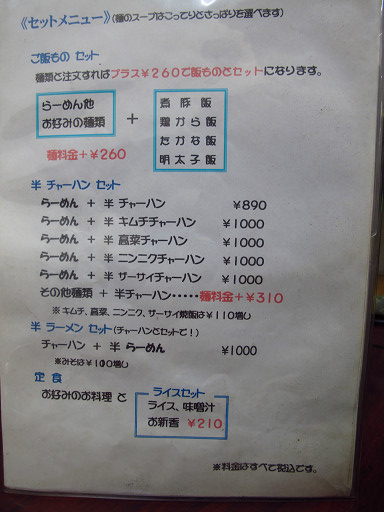 《セットメニュー》(麺のスープはこってりとさっぱりを選べます)
ご飯もの セット
麺類と注文すればプラス¥260で飯ものとセットになります。
らーめん他
お好みの麺類
+
煮豚飯
鶏がら飯
たかな飯
明太子飯
麺料金+¥260
半 チャーハン セット
らーめん + 半 チャーハン ¥890
らーめん + 半 キムチチャーハン ¥1000
らーめん + 半 高菜チャーハン ¥1000
らーめん + 半 ニンニクチャーハン ¥1000
らーめん + 半 サーサイチャーハン ¥1000
その他麺類 + 半チャーハン・・・・・麺料金+¥310
※キムチ、高菜、ニンニク、サーサイ焼飯は¥110増し
半 ラーメン セット(チャーハンとセットで!)
チャーハン + 半 らーめん ¥1000
※みそは¥100増し
定 食
お好みのお料理 と
ライスセット
ライス、味噌汁
お新香 ¥210
※料金はすべて税込です。